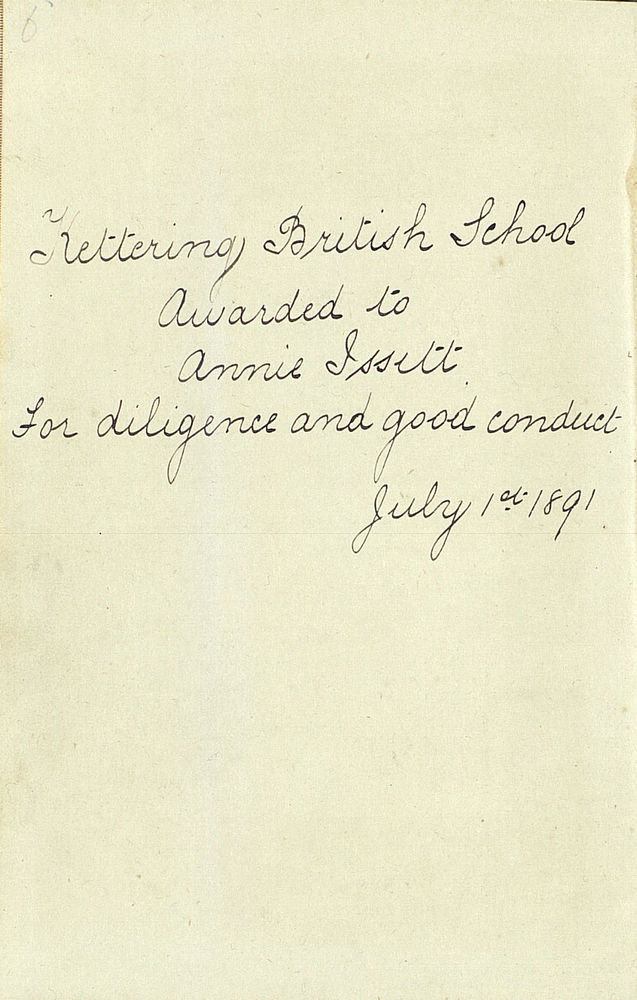 6
Kettering British School
Awarded to
Annie Issitt
For diligence and good conduct
July 1st 1891